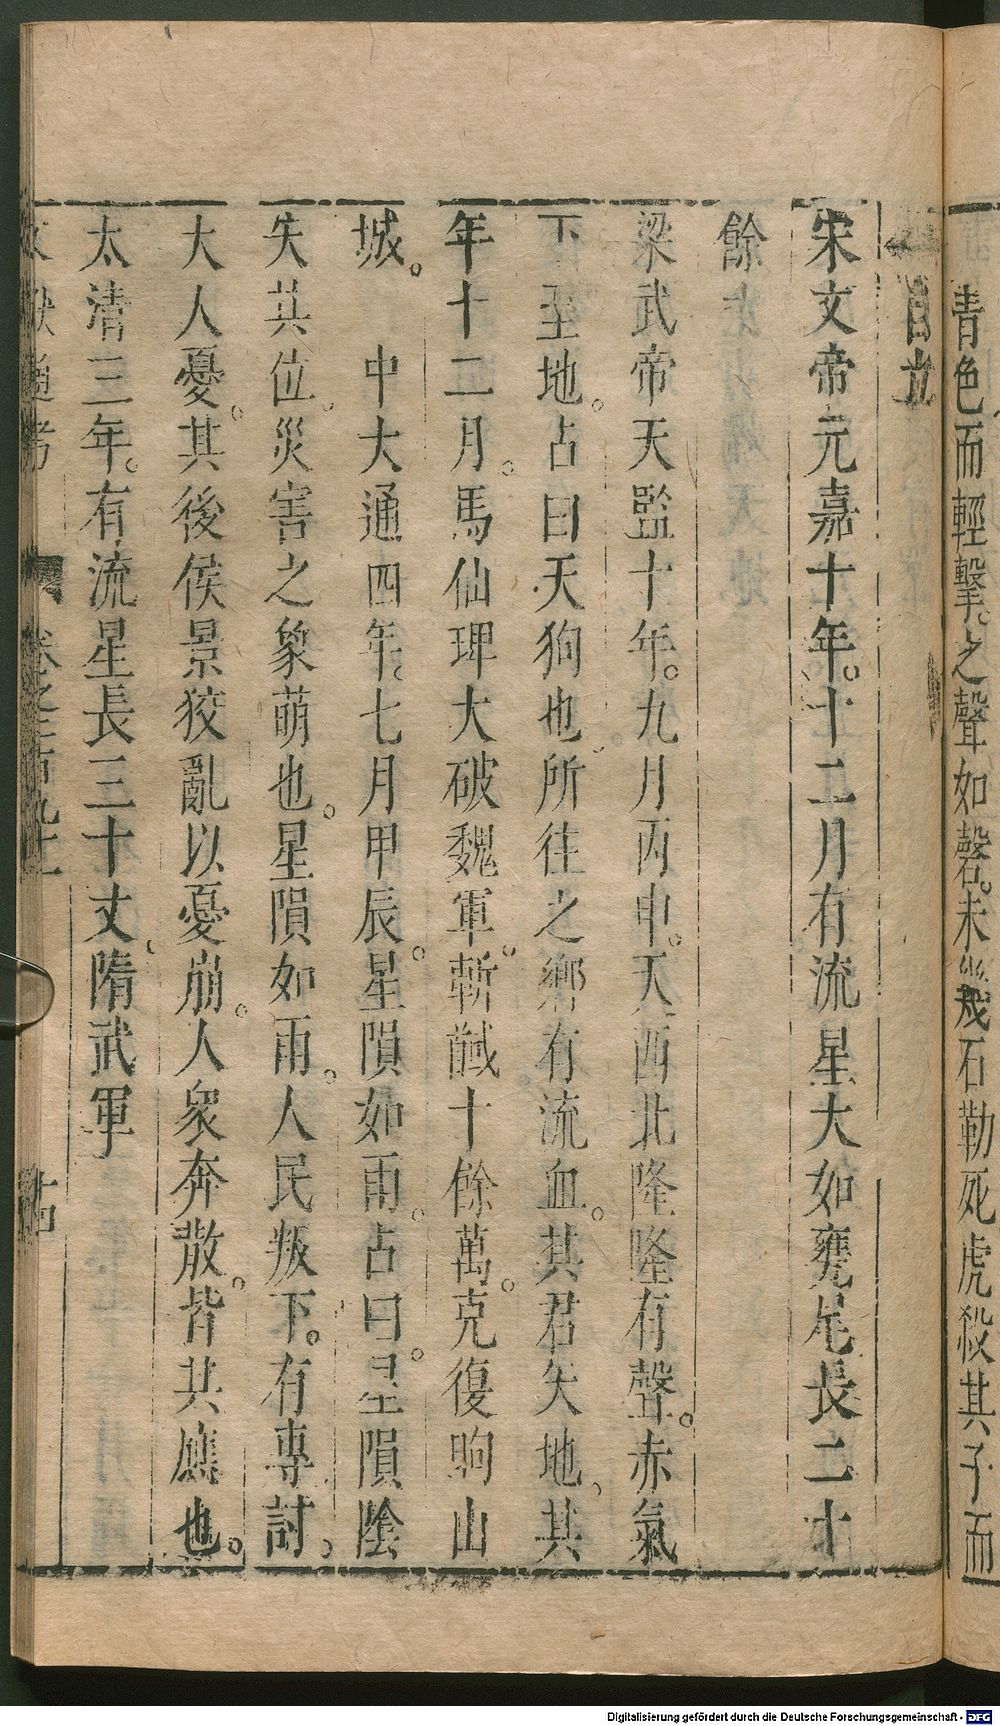 青色而輕擊。之聲如磬。未幾石勒死虎殺其子而
自立
宋文帝元嘉十年。十二月有流星大如甕尾長二十
餘
梁武帝天監十年。九月丙申。天西北隆隆有聲。赤氣
下至地。占曰天狗也。所往之鄉有流血。其君失地。其
年十二月。馬仙琕大破魏軍。斬馘十餘萬。克復朐山
城。　中大通四年。七月甲辰。星隕如雨。占曰。星隕陰
失其位。災害之象萌也。星隕如雨。人民叛下。有專討。
大人憂。其後侯景狡亂以憂崩。人衆奔散。皆其應也。
太清三年。有流星長三十丈。隋武軍
文獻通考　卷之二百九十一　十四
Digitalisierung gefördert durch die Deutsche Forschungsgemeinschaft - DFG